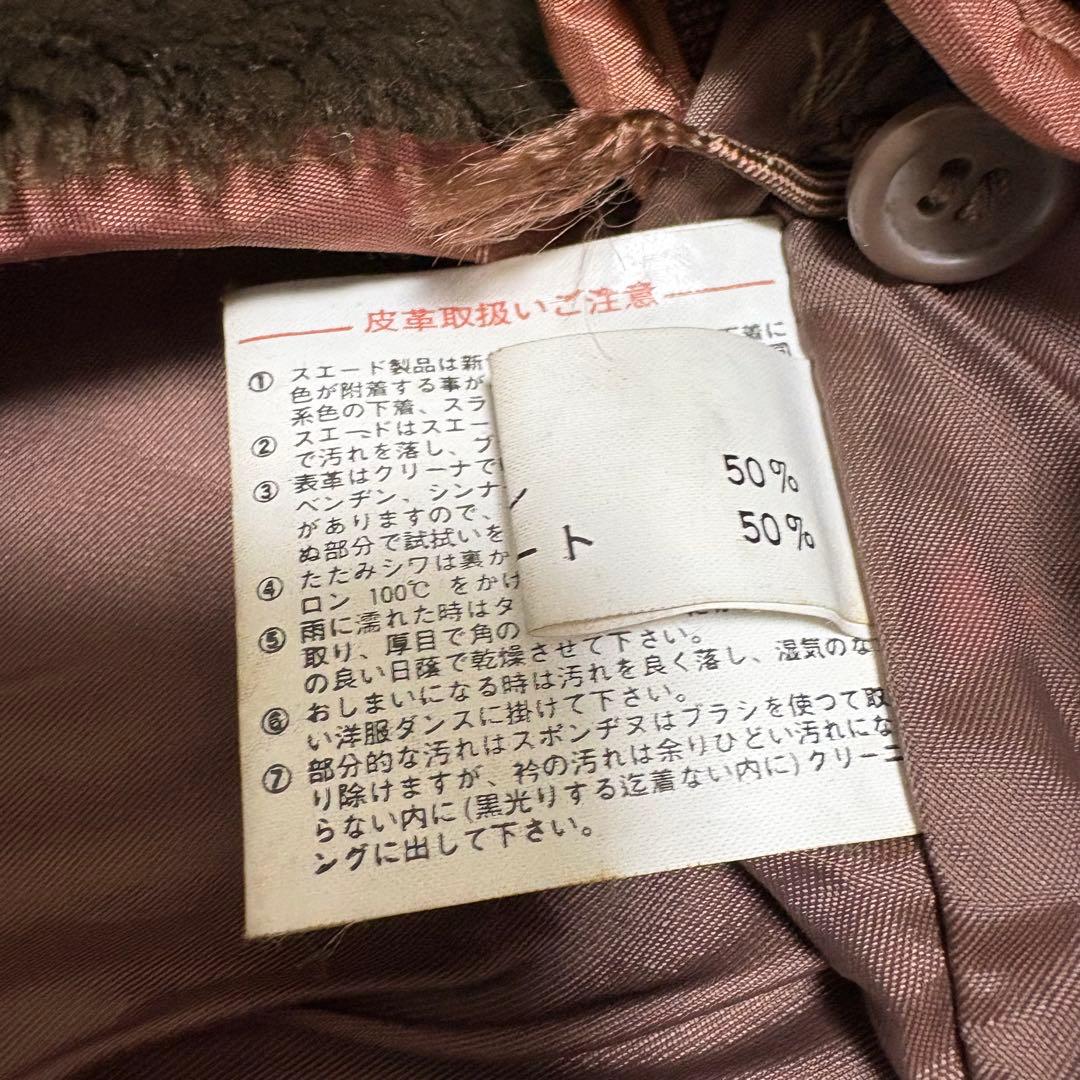 皮革取扱いご注意
① スエード製品は新 下着に
色が附着する事が 同
系色の下着、スラ
② スエードはスエー
で汚れを落し、ブ
③ 表革はクリーナで
ベンヂン、シンナ
がありますので、
ぬ部分で試拭いを
④ たたみシワは裏か
ロン 100℃ をかけ
⑤ 雨に濡れた時はタ
取り、厚目で角の
の良い日蔭で乾燥させて下さい。
⑥ おしまいになる時は汚れを良く落し、湿気のな
い洋服ダンスに掛けて下さい。
⑦ 部分的な汚れはスポンヂヌはブラシを使つて取
り除けますが、衿の汚れは余りひどい汚れにな
らない内に(黒光りする迄着ない内に)クリーニ
ングに出して下さい。
ン 50%
ート 50%